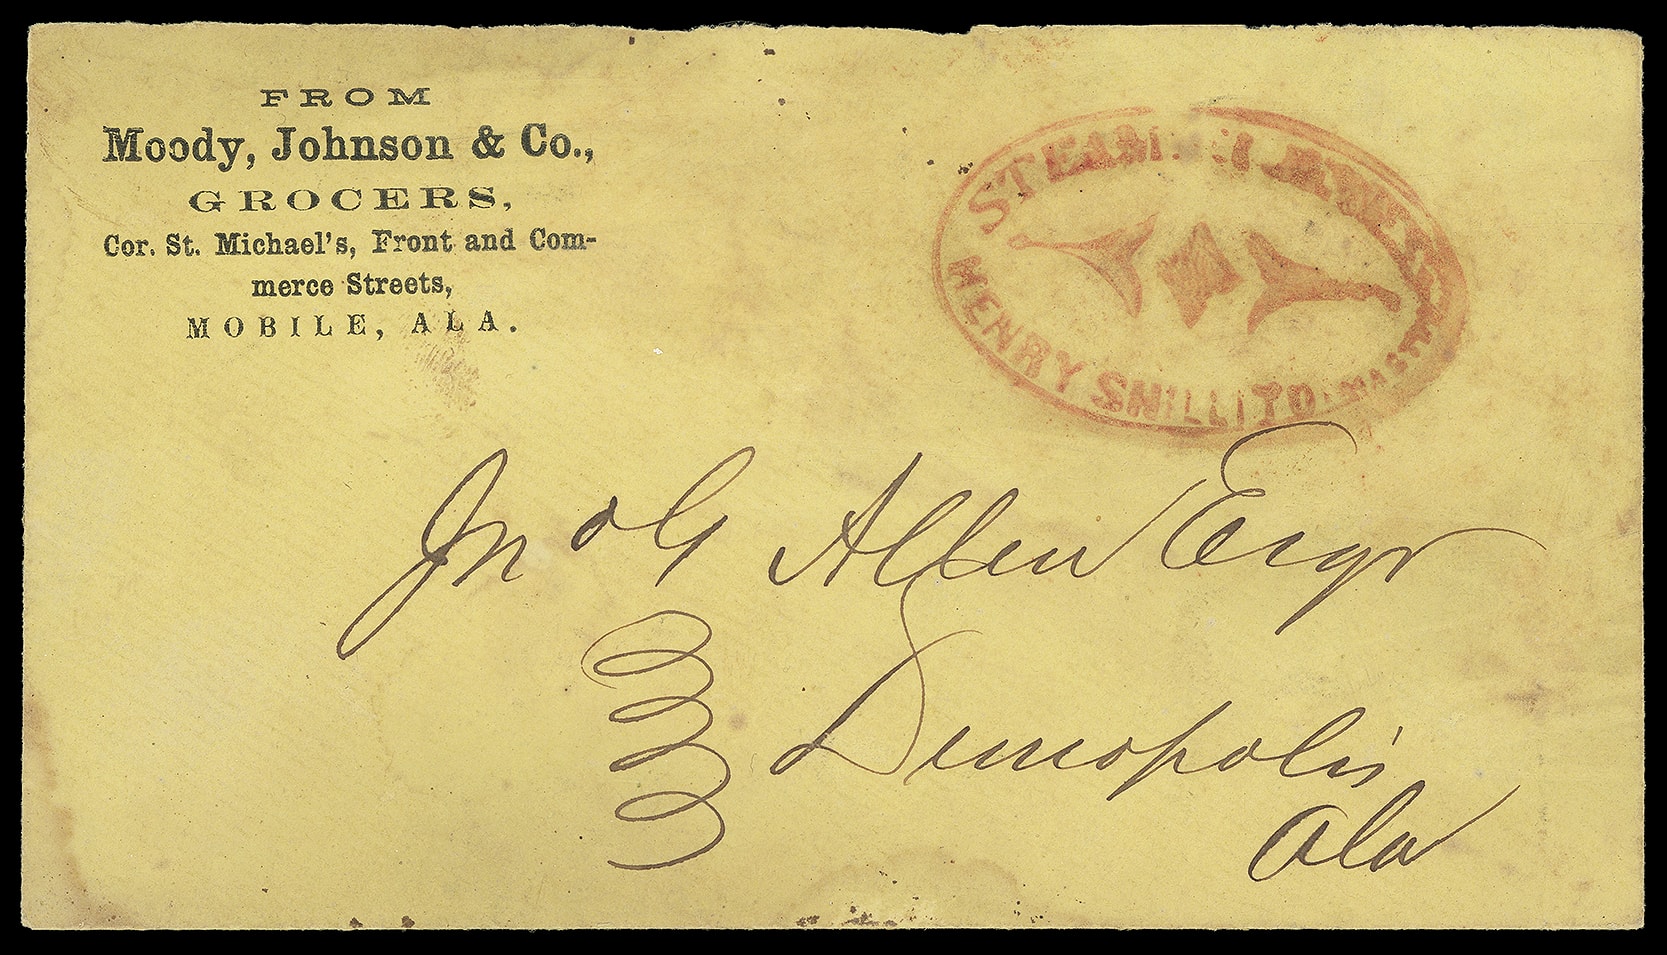 FROM
Moody, Johnson & Co.,
GROCERS,
Cor. St. Michael's, Front and Com-
merce Streets,
MOBILE, ALA.
STEAMER
HENRY SHILLITO, MAS
Jno G Allen Esqr
Demopolis
Ala